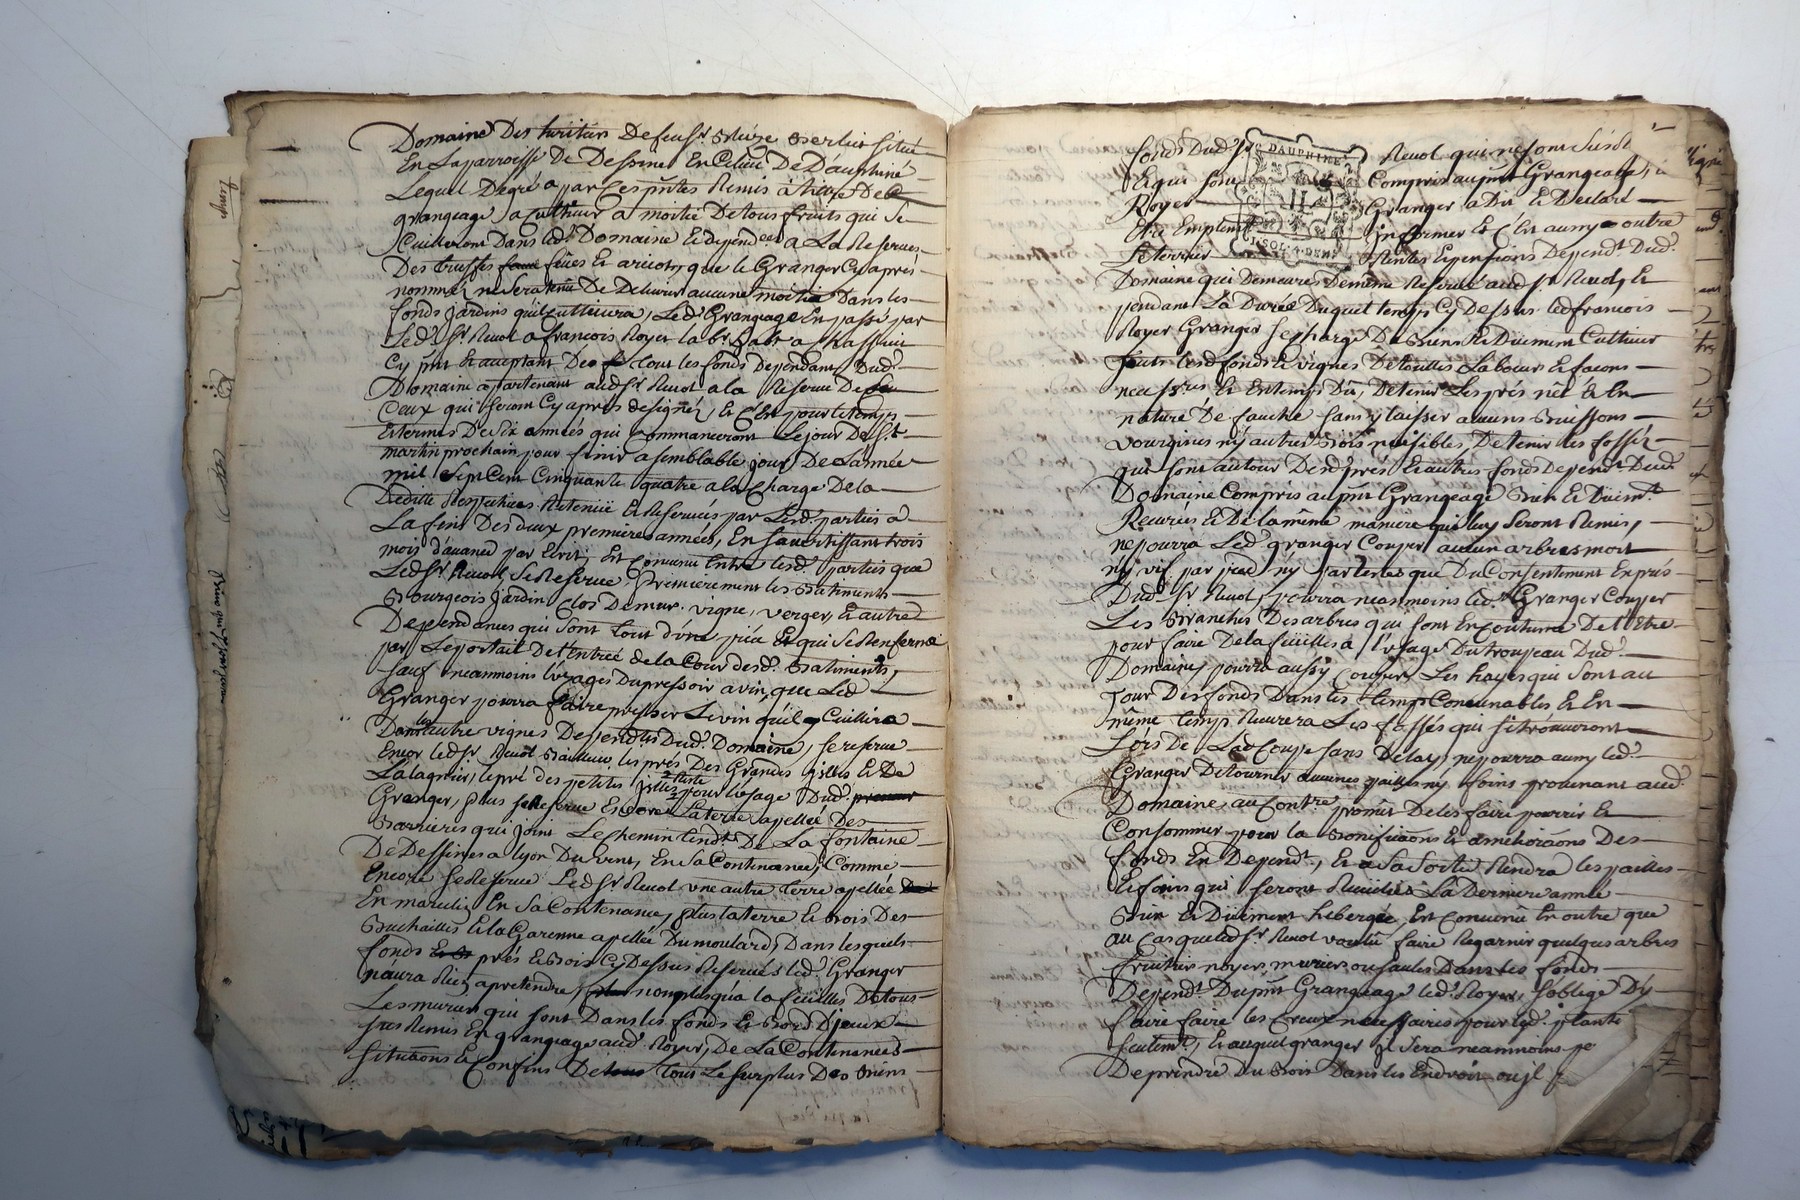 Domaine Des heritiers De feu Sr situé
En La parroisse De Dessine En Dauphiné
Lequel Degré a par Ces pntes Remis à titre De
grangeage a Cultiver a moitié De tous fruits qui se
Cuilleront Dans led. Domaine Et depend.ces a La Reserve
Des truffes feües Et aricots que le Granger Cy après
nommé ne sera tenu De Delivrer aucune moitié Dans les
fonds Jardins qu'il cultivera, Led. Grangeage En passé par
Led. Sr Revol a francois Royer
Cy pnt Et acceptant De tous les fonds Dependant Dud.
Domaine apartenant aud. Sr Revol a la Reserve De
Ceux qui seront Cy après designés, Et C'est pour le temps
Et termes De six années qui Commanceront Le jour De St
martin prochain pour finir a semblable jour De L'année
mil sept Cent Cinquante quatre a la Charge De la
Deditte Respective Retenüe Et Reservée par Lesd. parties a
La fin Des deux premieres années, En s'avertissant trois
mois d'avance par Ecrit, Est Convenu Entre lesd. parties que
Led. Sr Revol se Reserve premierement les Batiments
Bourgeois jardin Clos De mur, vigne, verger, Et autre
Dependances qui sont tout d'une piece Et qui se Renferme
par Le portail De l'Entrée de la Cour desd. Batiments,
sauf neanmoins l'usage Du pressoir a vin, que Led.
Granger pourra faire presser Le vin qu'il y Cuillira
Dans les autre vignes Depend.tes Dud. Domaine, se reserve
Encor led. Sr Revol les prés Des Grandes Isles Et De
La lagnier, le pré des petites Isles reste pour l'usage Dud.
Granger, plus se Reserve Encore La terre apellée Des
Barrieres qui joint Le Chemin tend.t De La fontaine
De Dessines a lyon Du vent, En sa Contenance, Comme
Encore se Reserve Led. Sr Revol une autre terre apellée
En marulin En sa Contenance, plus la terre Et bois Des
Buchailles Et la Garenne apellée Du moulard, Dans lesquels
fonds prés Et Bois Cy Dessus Reservés led. Granger
n'aura Rien a pretendre, non plus qu'a la feuilles De tous
Les muriers qui sont Dans les fonds Et Bord
Remis En grangeage aud. Royer, De La Contenances
situations Et Confins De tous Le surplus Des Biens
fonds Dud. Sr
G. DAUPHINÉ
Revol qui ne sont
Et qui sont
Compris au pnt Grangeage,
Royer
Granger a Dit Et Declaré
Emplem
In former Et C'Est aussy outre
1.SOL.4.DEN.
Rentes Et pensions Depend.t Dud.
Domaine qui Demeures De même Reservé aud. Sr Revol, Et
pendant La Durée Duquel temps Cy Dessus led. francois
Royer Granger se charge De Bien Et Düement Cultiver
tous lesd. fonds Et vignes De touttes Labeur Et facons
necess.res, Et En temps Du, De tenir Les prés net Et En
nature De fauche sans y laisser aucuns Buissons
vourgines ny autres Bois nuisibles, De tenir les fossés
qui sont autour Desd. prés Et autres fonds Depend.t Dud.
Domaine Compris au pnt Grangeage Bien Et Düem.t
Recurés Et De la même maniere qui luy seront Remis,
ne pourra Led. granger Couper aucun arbres mort
ny vif par pied ny par testes que Du Consentement Exprés
Dud. Sr Revol, pourra neanmoins led. Granger Couper
Les Branches Des arbres qui sont En Coutume De L'Etre
pour faire De la feuilles a l'usage Du troupeau Dud.
Domaine, pourra aussy Couper Les hayes qui sont au
Tour Des fonds Dans les temps Convenables Et En
même temps Recurera Les fossés qui se trouveront
Lors De Lad. Coupe sans Delay, ne pourra aussy led.
Granger Detourner aucunes pailles ny foins provenant aud.
Domaine, au Contre promet De les faire pourrir Et
Consommer pour la Bonifications Et ameliorations Des
fonds En Depend.t, Et a sa sortie Rendra les pailles
Et foins qui seront Recuillis La Derniere année
Bien Et Düement hebergée, Est Convenu En outre que
au Cas que led. Sr Revol voulu faire Regarnir quelques arbres
fruitiers noyers, muriers ou saules Dans les fonds
Depend.t Du pnt Grangeage led. Royer, s'oblige D'y
faire faire les Creux necessaires pour led. planté
seulem.t, Et auquel granger il sera neanmoins pe
De prendre Du Bois Dans les Endroit ou jl